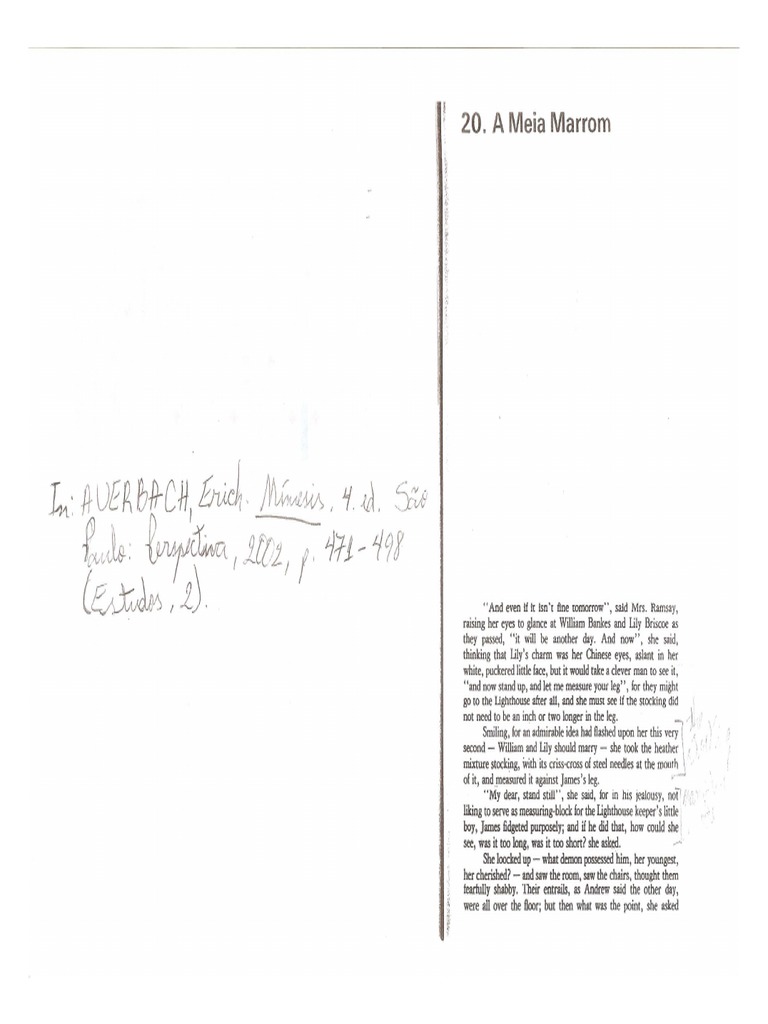 In: AUERBACH, Erich. Mímesis. 4. ed. São
Paulo: Perspectiva, 2002, p. 471-498
(Estudos, 2).
20. A Meia Marrom
"And even if it isn't fine tomorrow", said Mrs. Ramsay,
raising her eyes to glance at William Bankes and Lily Briscoe as
they passed, "it will be another day. And now", she said,
thinking that Lily's charm was her Chinese eyes, aslant in her
white, puckered little face, but it would take a clever man to see it,
"and now stand up, and let me measure your leg", for they might
go to the Lighthouse after all, and she must see if the stocking did
not need to be an inch or two longer in the leg.
Smiling, for an admirable idea had flashed upon her this very
second — William and Lily should marry — she took the heather
mixture stocking, with its criss-cross of steel needles at the mouth
of it, and measured it against James's leg.
"My dear, stand still", she said, for in his jealousy, not
liking to serve as measuring-block for the Lighthouse keeper's little
boy, James fidgeted purposely; and if he did that, how could she
see, was it too long, was it too short? she asked.
She loocked up — what demon possessed him, her youngest,
her cherished? — and saw the room, saw the chairs, thought them
fearfully shabby. Their entrails, as Andrew said the other day,
were all over the floor; but then what was the point, she asked